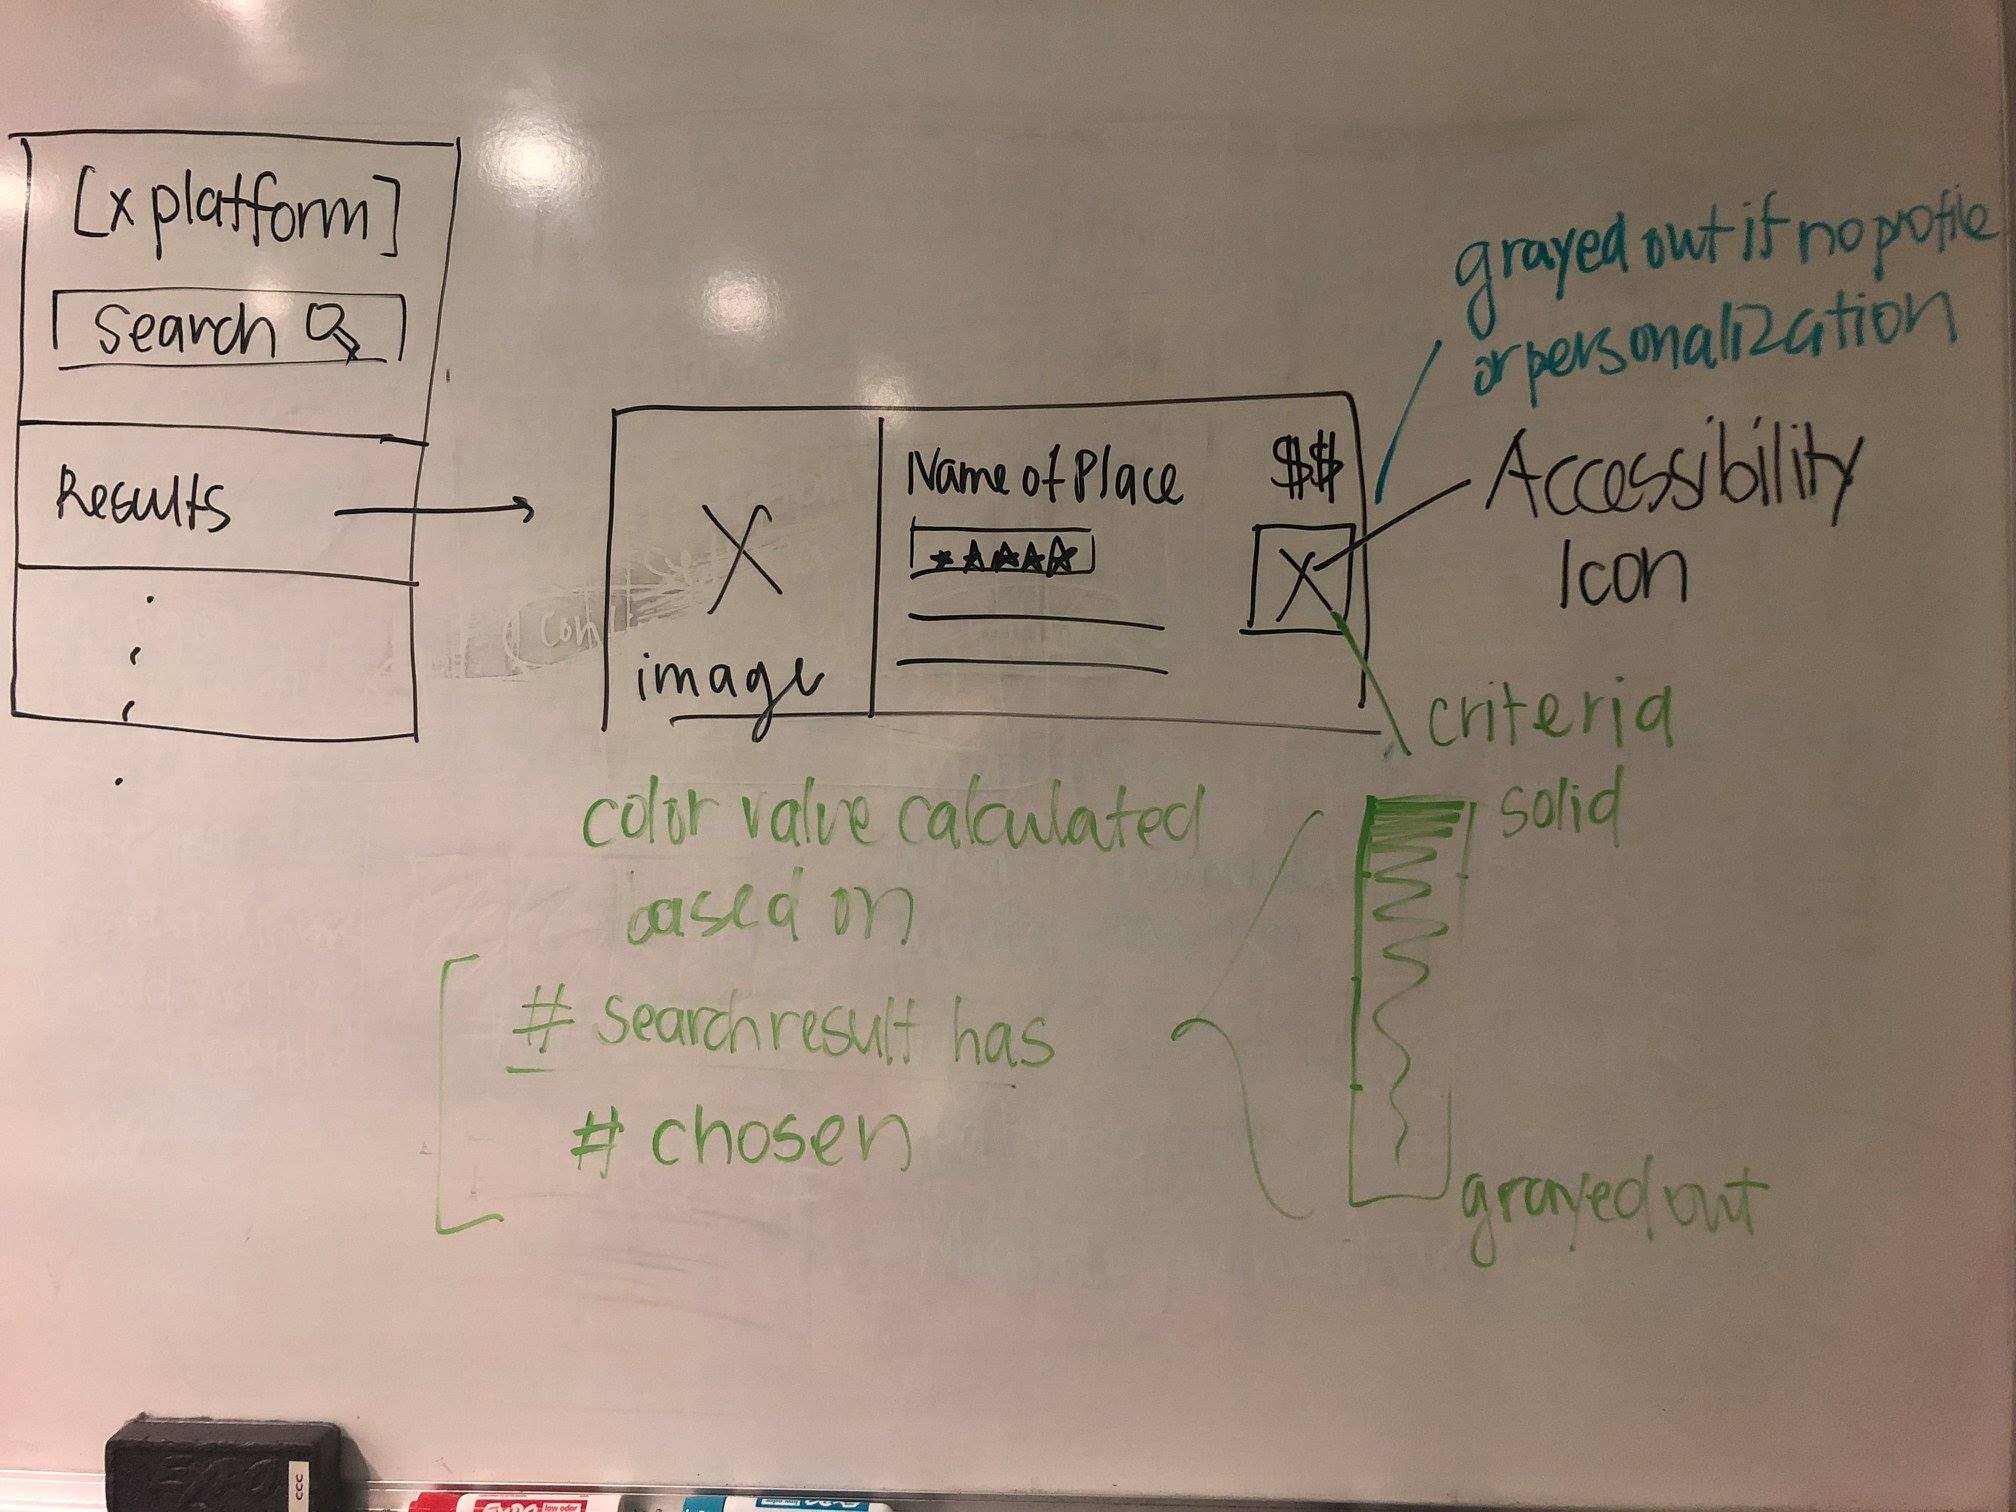 [x platform]
Search
Results
image
Name of Place
$$
★★★★★
grayed out if no profile
or personalization
Accessibility
Icon
criteria
solid
grayed out
color value calculated
based on
# search result has
# chosen
Con
EXPO
ccc
EXPO low odor